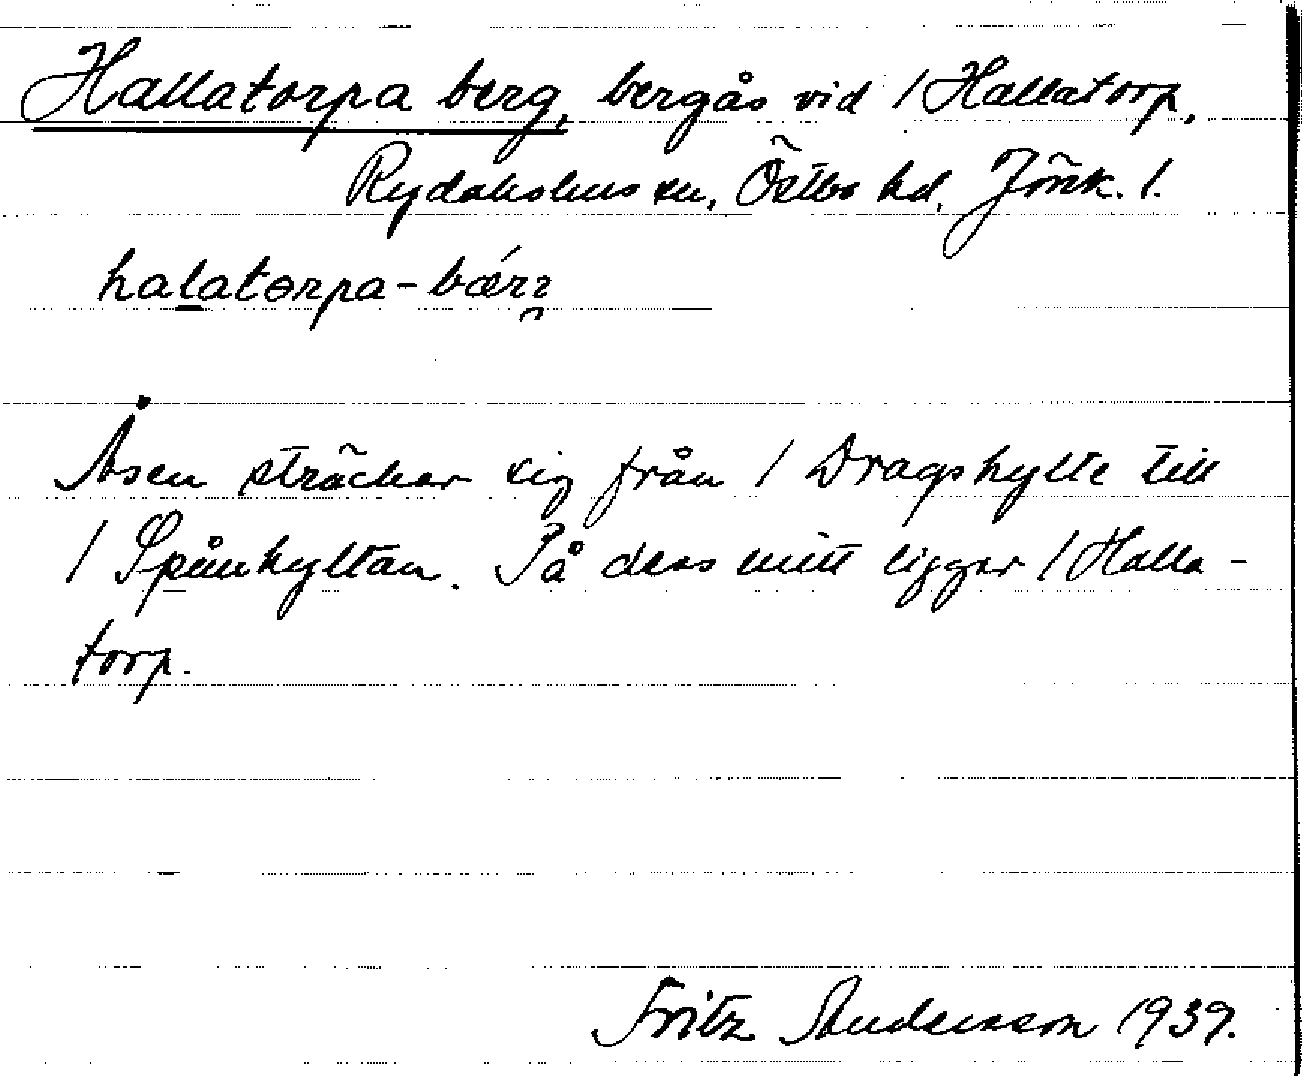 Hallatorpa berg, bergås vid / Hallatorp,
Rydaholms sn, Östbo hd, Jönk. l.
halatorpa-bærɿ
Åsen sträcker sig från / Dragshylte till
/ Spånhyltan. På dess mitt ligger / Halla-
torp.
Fritz Andersson 1939.